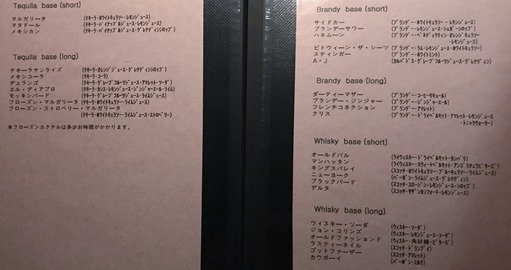 Tequila base (short)
マルガリータ (テキーラ･ホワイトキュラソー･レモンジュース)
マタドール (テキーラ･パイナップルジュース･ライムジュース)
メキシカン (テキーラ･パイナップルジュース･グレナディンシロップ)
Tequila base (long)
テキーラサンライズ (テキーラ･オレンジジュース･グレナディンシロップ)
メキシコーラ (テキーラ･コーラ)
デュランゴ (テキーラ･グレープフルーツジュース･アマレット･ソーダ)
エル･ディアブロ (テキーラ･カシス･レモンジュース･ジンジャーエール･ライム)
モッキンバード (テキーラ･グレープフルーツジュース･ライムジュース)
フローズン･マルガリータ
フローズン･ストロベリー･マルガリータ
※フローズンカクテルは多少お時間がかかります。
Brandy base (short)
サイドカー (ブランデー･ホワイトキュラソー･レモンジュース)
ブランデーサワー (ブランデー･レモンジュース･シュガーシロップ)
ハネムーン
ビトウィーン･ザ･シーツ (ブランデー･ラム･レモンジュース･ホワイトキュラソー)
スティンガー (ブランデー･ホワイトミント)
A･J
Brandy base (long)
ダーティーマザー (ブランデー･コーヒーリキュール)
ブランデー･ジンジャー (ブランデー･ジンジャーエール)
フレンチコネクション (ブランデー･アマレット)
クリス
-トニックウォーター)
Whisky base (short)
オールドパル (ライウィスキー･ドライベルモット･カンパリ)
マンハッタン (ライウィスキー･スウィートベルモット･アンゴスチュラビターズ)
キングスバレイ (スコッチ･ホワイトキュラソー･ブルーキュラソー･ライムジュース)
ニューヨーク (バーボン･ライムジュース･グレナディン)
ブラックバード
デルタ
Whisky base (long)
ウィスキー･ソーダ (ウィスキー･ソーダ)
ジョン･コリンズ (ウィスキー･レモンジュース･ソーダ)
オールドファッションド (ウィスキー･角砂糖･ビターズ)
ラスティーネイル (スコッチ･ドランブイ)
ゴットファーザー (スコッチ･アマレット)
カウボーイ (バーボン･ミルク)